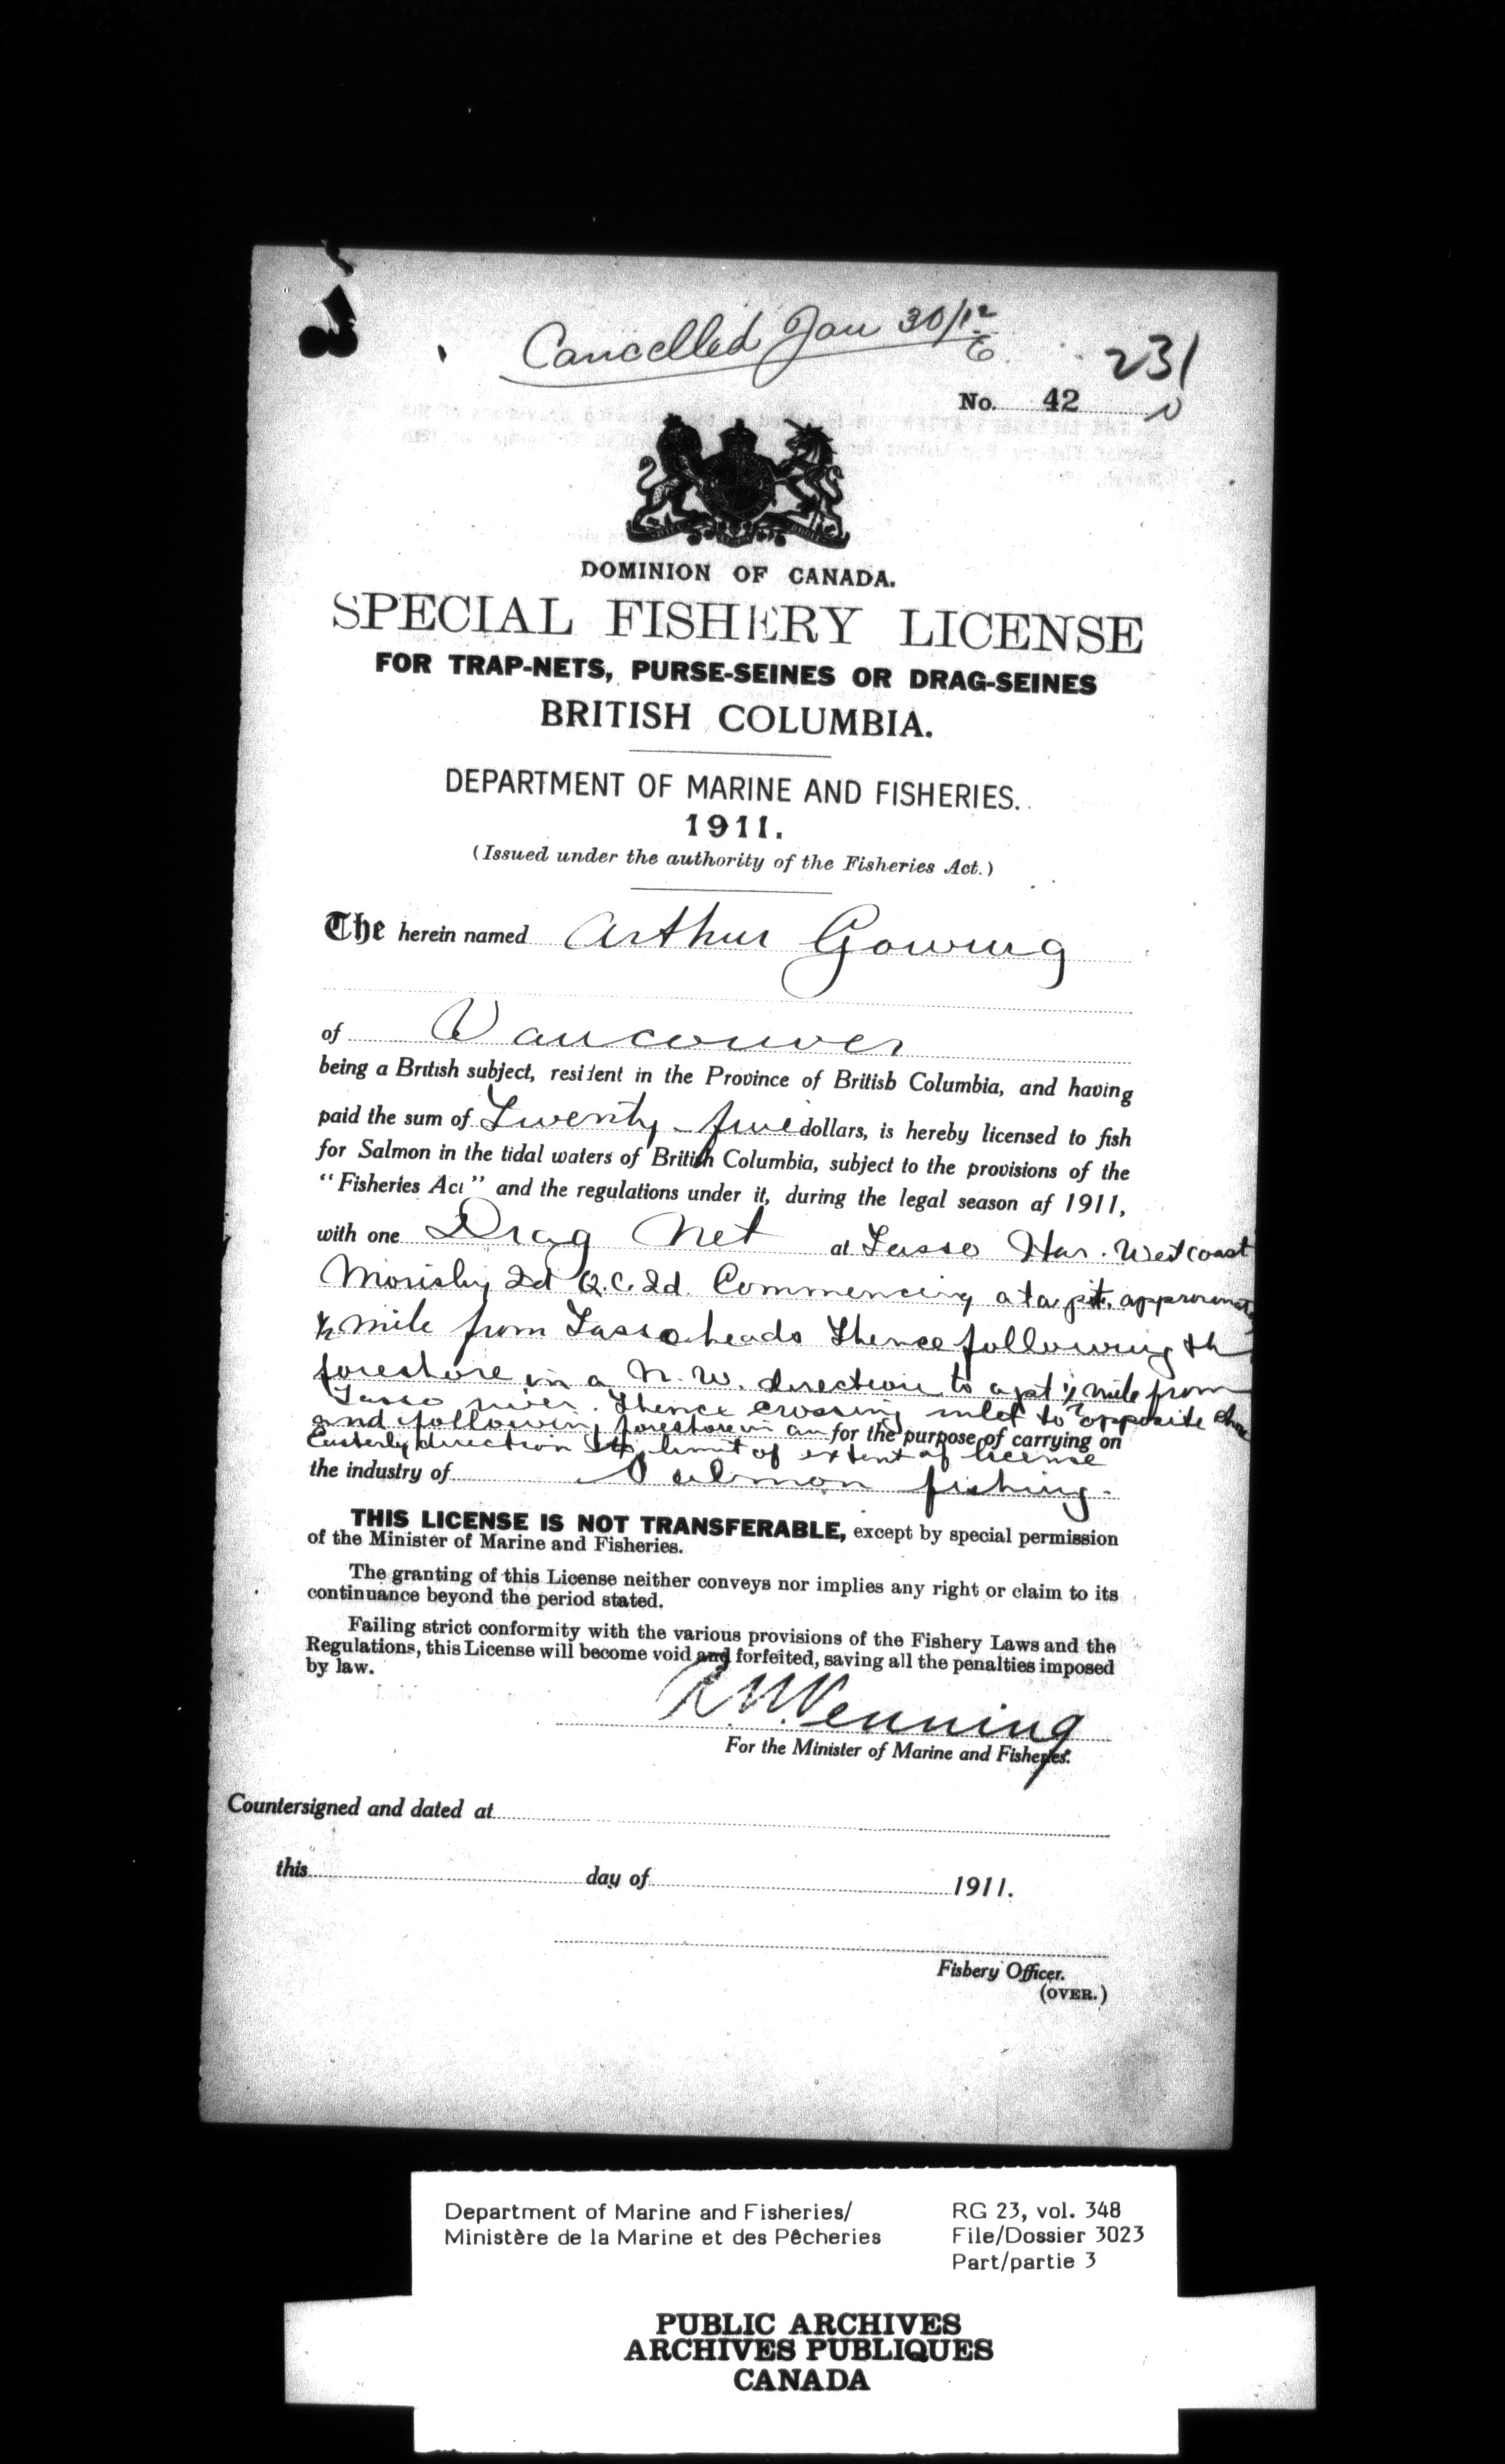 Cancelled Jan 30/12
231
No. 42
DOMINION OF CANADA.
SPECIAL FISHERY LICENSE
FOR TRAP-NETS, PURSE-SEINES OR DRAG-SEINES
BRITISH COLUMBIA.
DEPARTMENT OF MARINE AND FISHERIES.
1911.
(Issued under the authority of the Fisheries Act.)
The herein named Arthur Gowing
of Vancouver
being a British subject, resident in the Province of British Columbia, and having
paid the sum of Twenty-five dollars, is hereby licensed to fish
for Salmon in the tidal waters of British Columbia, subject to the provisions of the
"Fisheries Act" and the regulations under it, during the legal season af 1911,
with one Drag Net at Tasso Har. West coast
Morisby Id Q.C.Id. Commencing at a pt. approximate
½ mile from Tasso heads Thence following th
foreshore in a N.W. direction to a pt ½ mile from
Tasso river. Thence crossing inlet to opposite shore
and following foreshore in an for the purpose of carrying on
Easterly direction to limit of extent of license
the industry of Salmon fishing.
THIS LICENSE IS NOT TRANSFERABLE, except by special permission
of the Minister of Marine and Fisheries.
The granting of this License neither conveys nor implies any right or claim to its
continuance beyond the period stated.
Failing strict conformity with the various provisions of the Fishery Laws and the
Regulations, this License will become void and forfeited, saving all the penalties imposed
by law.
R.N. Venning
For the Minister of Marine and Fisheries.
Countersigned and dated at
this day of 1911.
Fishery Officer.
(OVER.)
Department of Marine and Fisheries/ RG 23, vol. 348
Ministère de la Marine et des Pêcheries File/Dossier 3023
Part/partie 3
PUBLIC ARCHIVES
ARCHIVES PUBLIQUES
CANADA